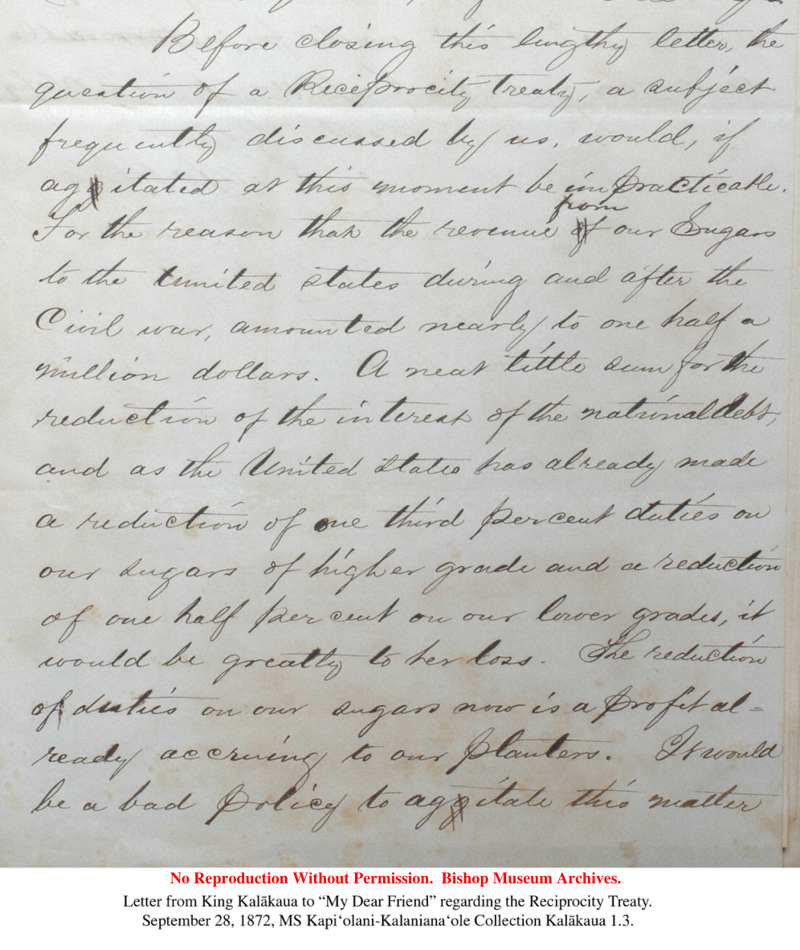 Before closing this lengthy letter, the
question of a Reciprocity treaty, a subject
frequently discussed by us, would, if
agitated at this moment be impracticable.
from
For the reason that the revenue of our Sugars
to the United States during and after the
Civil war, amounted nearly to one half a
million dollars. A neat little sum for the
reduction of the interest of the national debt,
and as the United States has already made
a reduction of one third per cent duties on
our sugars of higher grade and a reduction
of one half per cent on our lower grades, it
would be greatly to her loss. The reduction
of duties on our sugars now is a profit al=
ready accruing to our planters. It would
be a bad policy to agitate this matter
No Reproduction Without Permission. Bishop Museum Archives.
Letter from King Kalākaua to “My Dear Friend” regarding the Reciprocity Treaty.
September 28, 1872, MS Kapi‘olani-Kalaniana‘ole Collection Kalākaua 1.3.